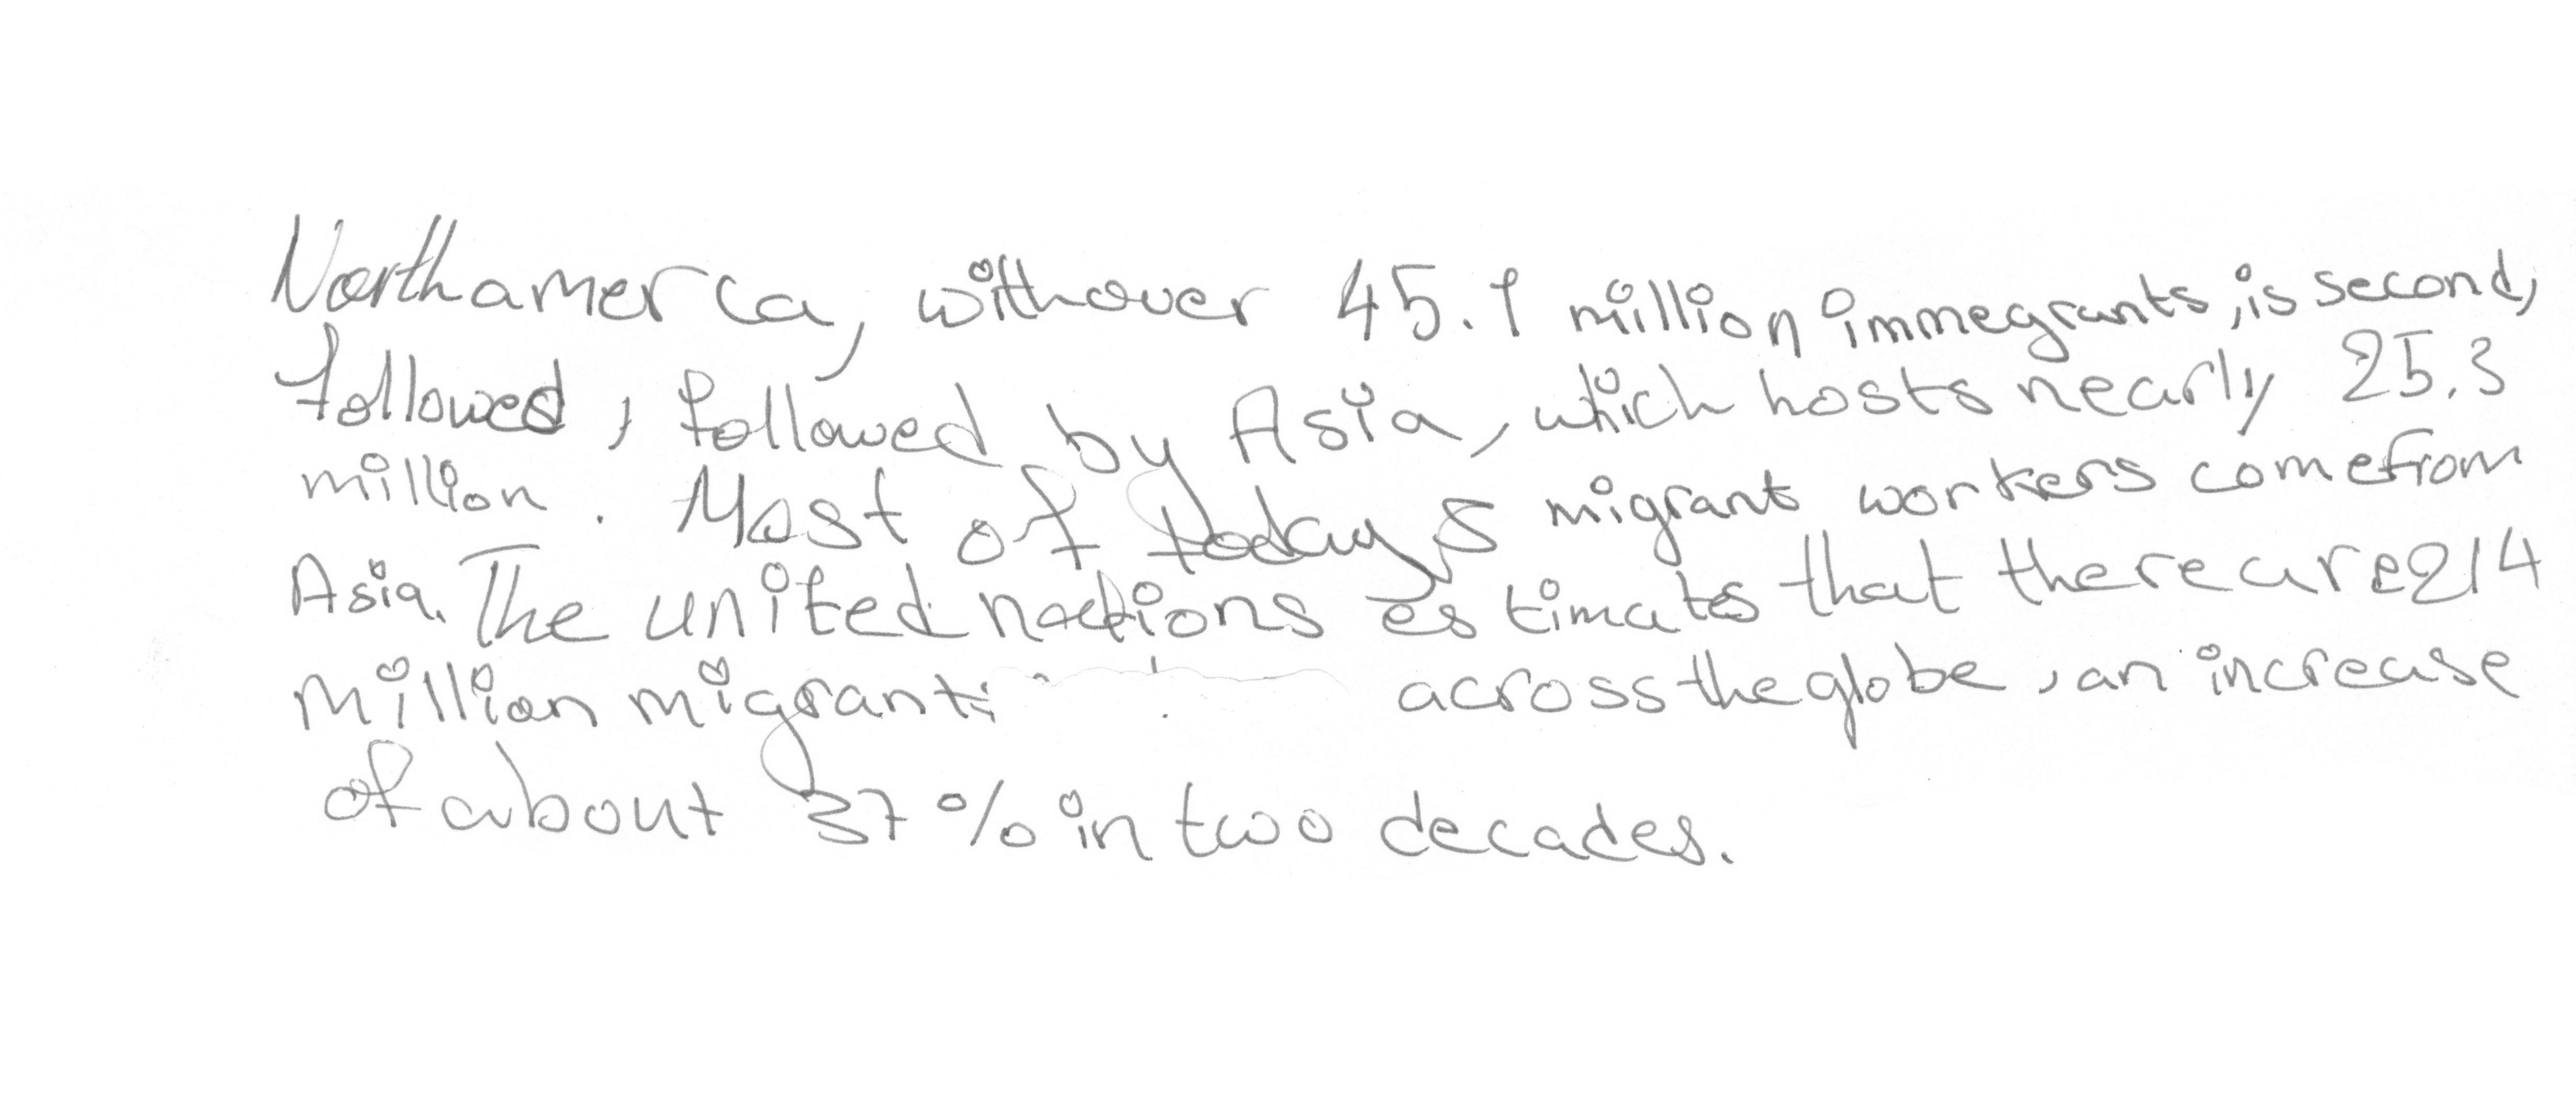 Northamerca, withover 45.1 million immegrants, is second,
followed, followed by Asia, which hosts nearly 25.3
million. Most of todays migrant workers comefrom
Asia. The united nations estimates that thereare 214
million migrants across the globe, an increase
of about 37% in two decades.